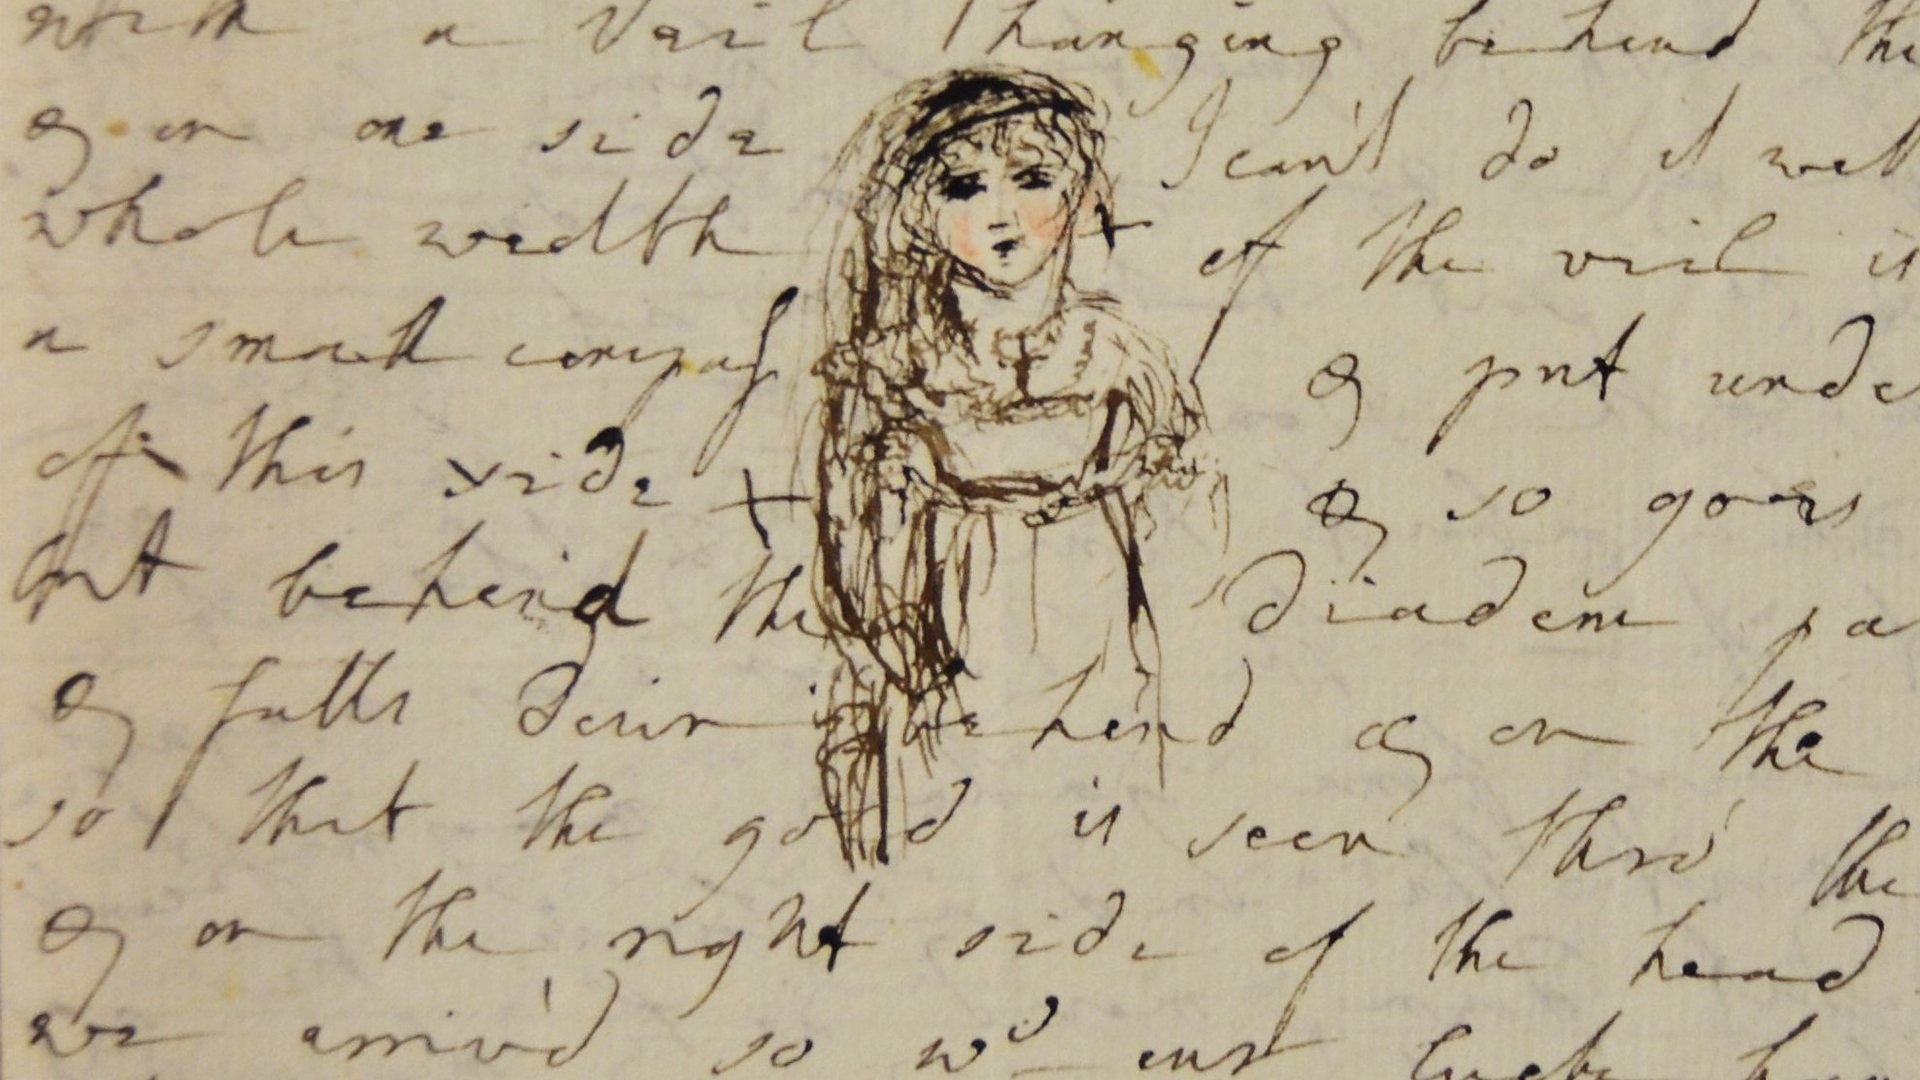 with a Vail hanging behind the
& on one side I can't do it well
whole width + of the veil is
a small compass & put unde
of this side + & so goes
but behind the diadem pa
& falls down behind & on the
so that the gold is seen thro' the
& on the right side of the head
we arriv'd so wd our